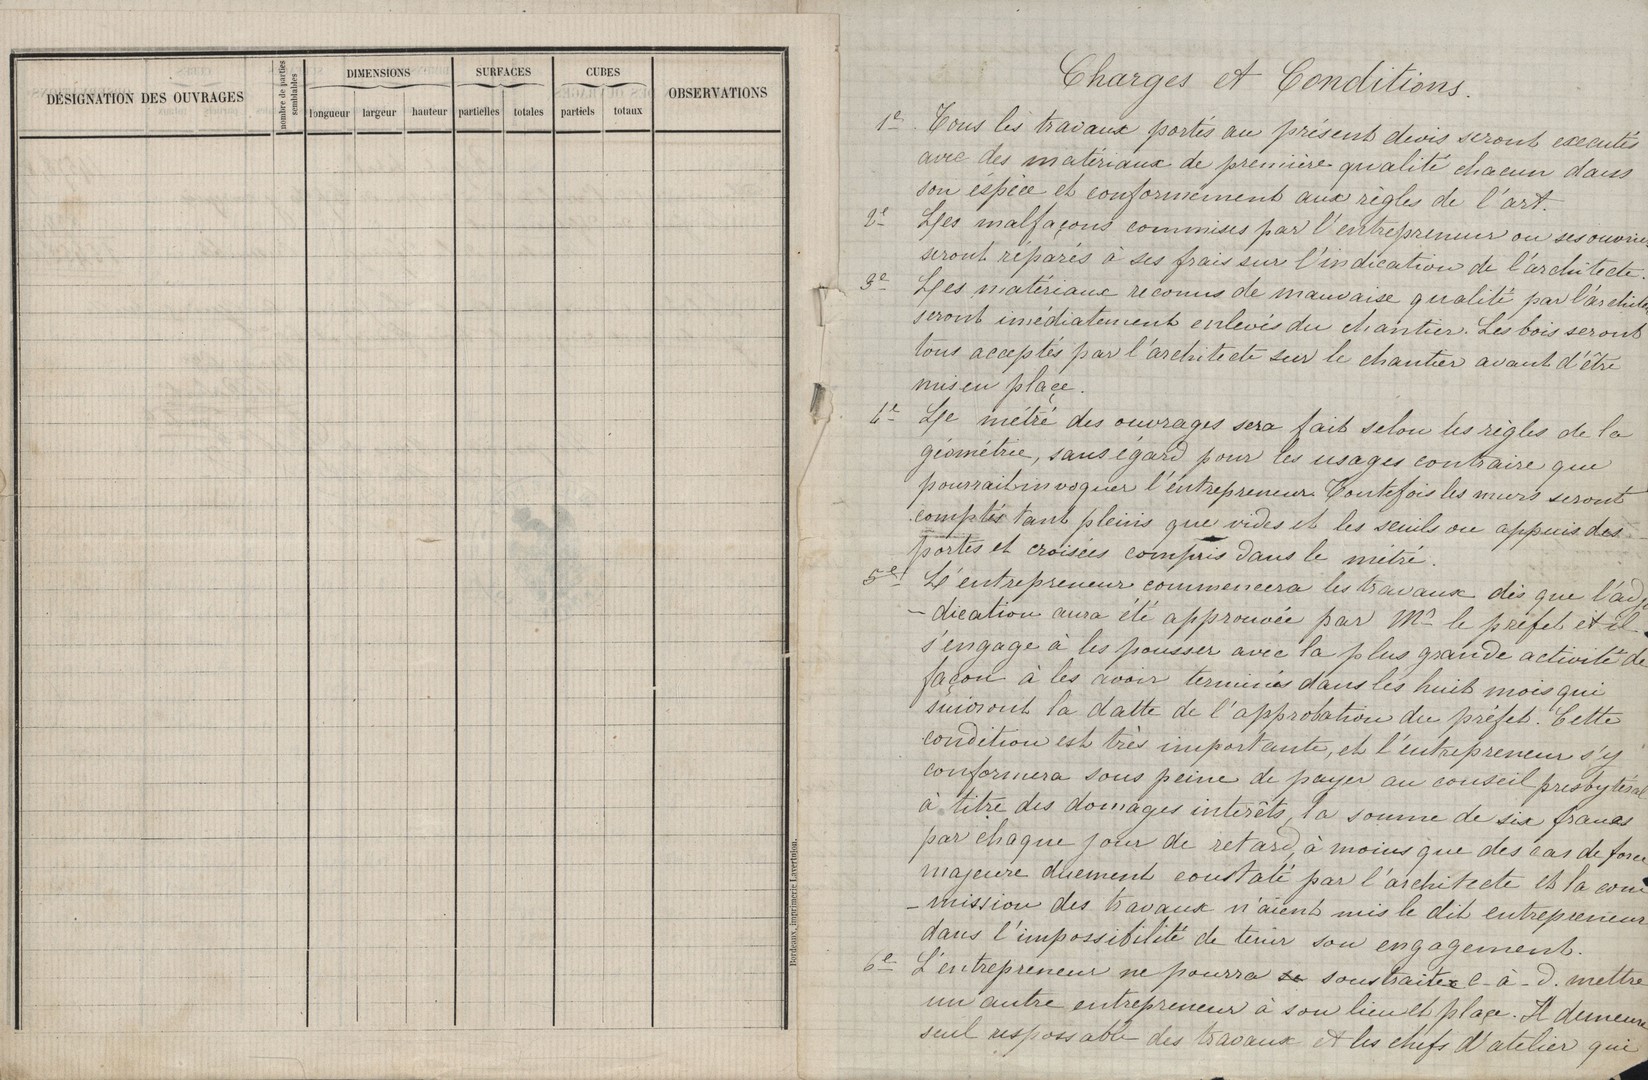 DÉSIGNATION DES OUVRAGES
nombre de parties semblables
DIMENSIONS
longueur largeur hauteur
SURFACES
partielles totales
CUBES
partiels totaux
OBSERVATIONS
Bordeaux, imprimerie Lavertujon.
Charges et Conditions.
1e Tous les travaux portés au présent devis seront executés
avec des matériaux de première qualité chacun dans
son éspèce et conformement aux règles de l'art.
2e Les malfaçons commises par l'entrepreneur ou ses ouvriers
seront réparés à ses frais sur l'indication de l'architecte.
3e Les matériaux reconnus de mauvaise qualité par l'architecte
seront imédiatement enlevés du chantier. Les bois seront
tous acceptés par l'architecte sur le chantier avant d'être
mis en plaçe.
4e Le métré des ouvrages sera fait selon les règles de la
géométrie, sans égard pour les usages contraire que
pourrait invoquer l'entrepreneur. Toutefois les murs seront
comptés tant pleins que vides et les seuils ou appuis des
portes et croisées compris dans le métré.
5e L'entrepreneur commencera les travaux dès que l'adju
-dication aura été approuvée par Mr le préfet et il
s'engage à les pousser avec la plus grande activité de
façon à les avoir terminés dans les huit mois qui
suivront la datte de l'approbation du préfet. Cette
condition est très importante, et l'entrepreneur s'y
conformera sous peine de payer au conseil presbytéral
à titre des domages interêts, la somme de six francs
par chaque jour de retard, à moins que des cas de force
majeure duement constaté par l'architecte et la com
-mission des travaux n'aient mis le dit entrepreneur
dans l'impossibilité de tenir son engagement.
6e L'entrepreneur ne pourra se soustraiter c-à-d. mettre
un autre entrepreneur à son lieu et plaçe. Il demeure
seul responsable des travaux et les chefs d'atelier qui